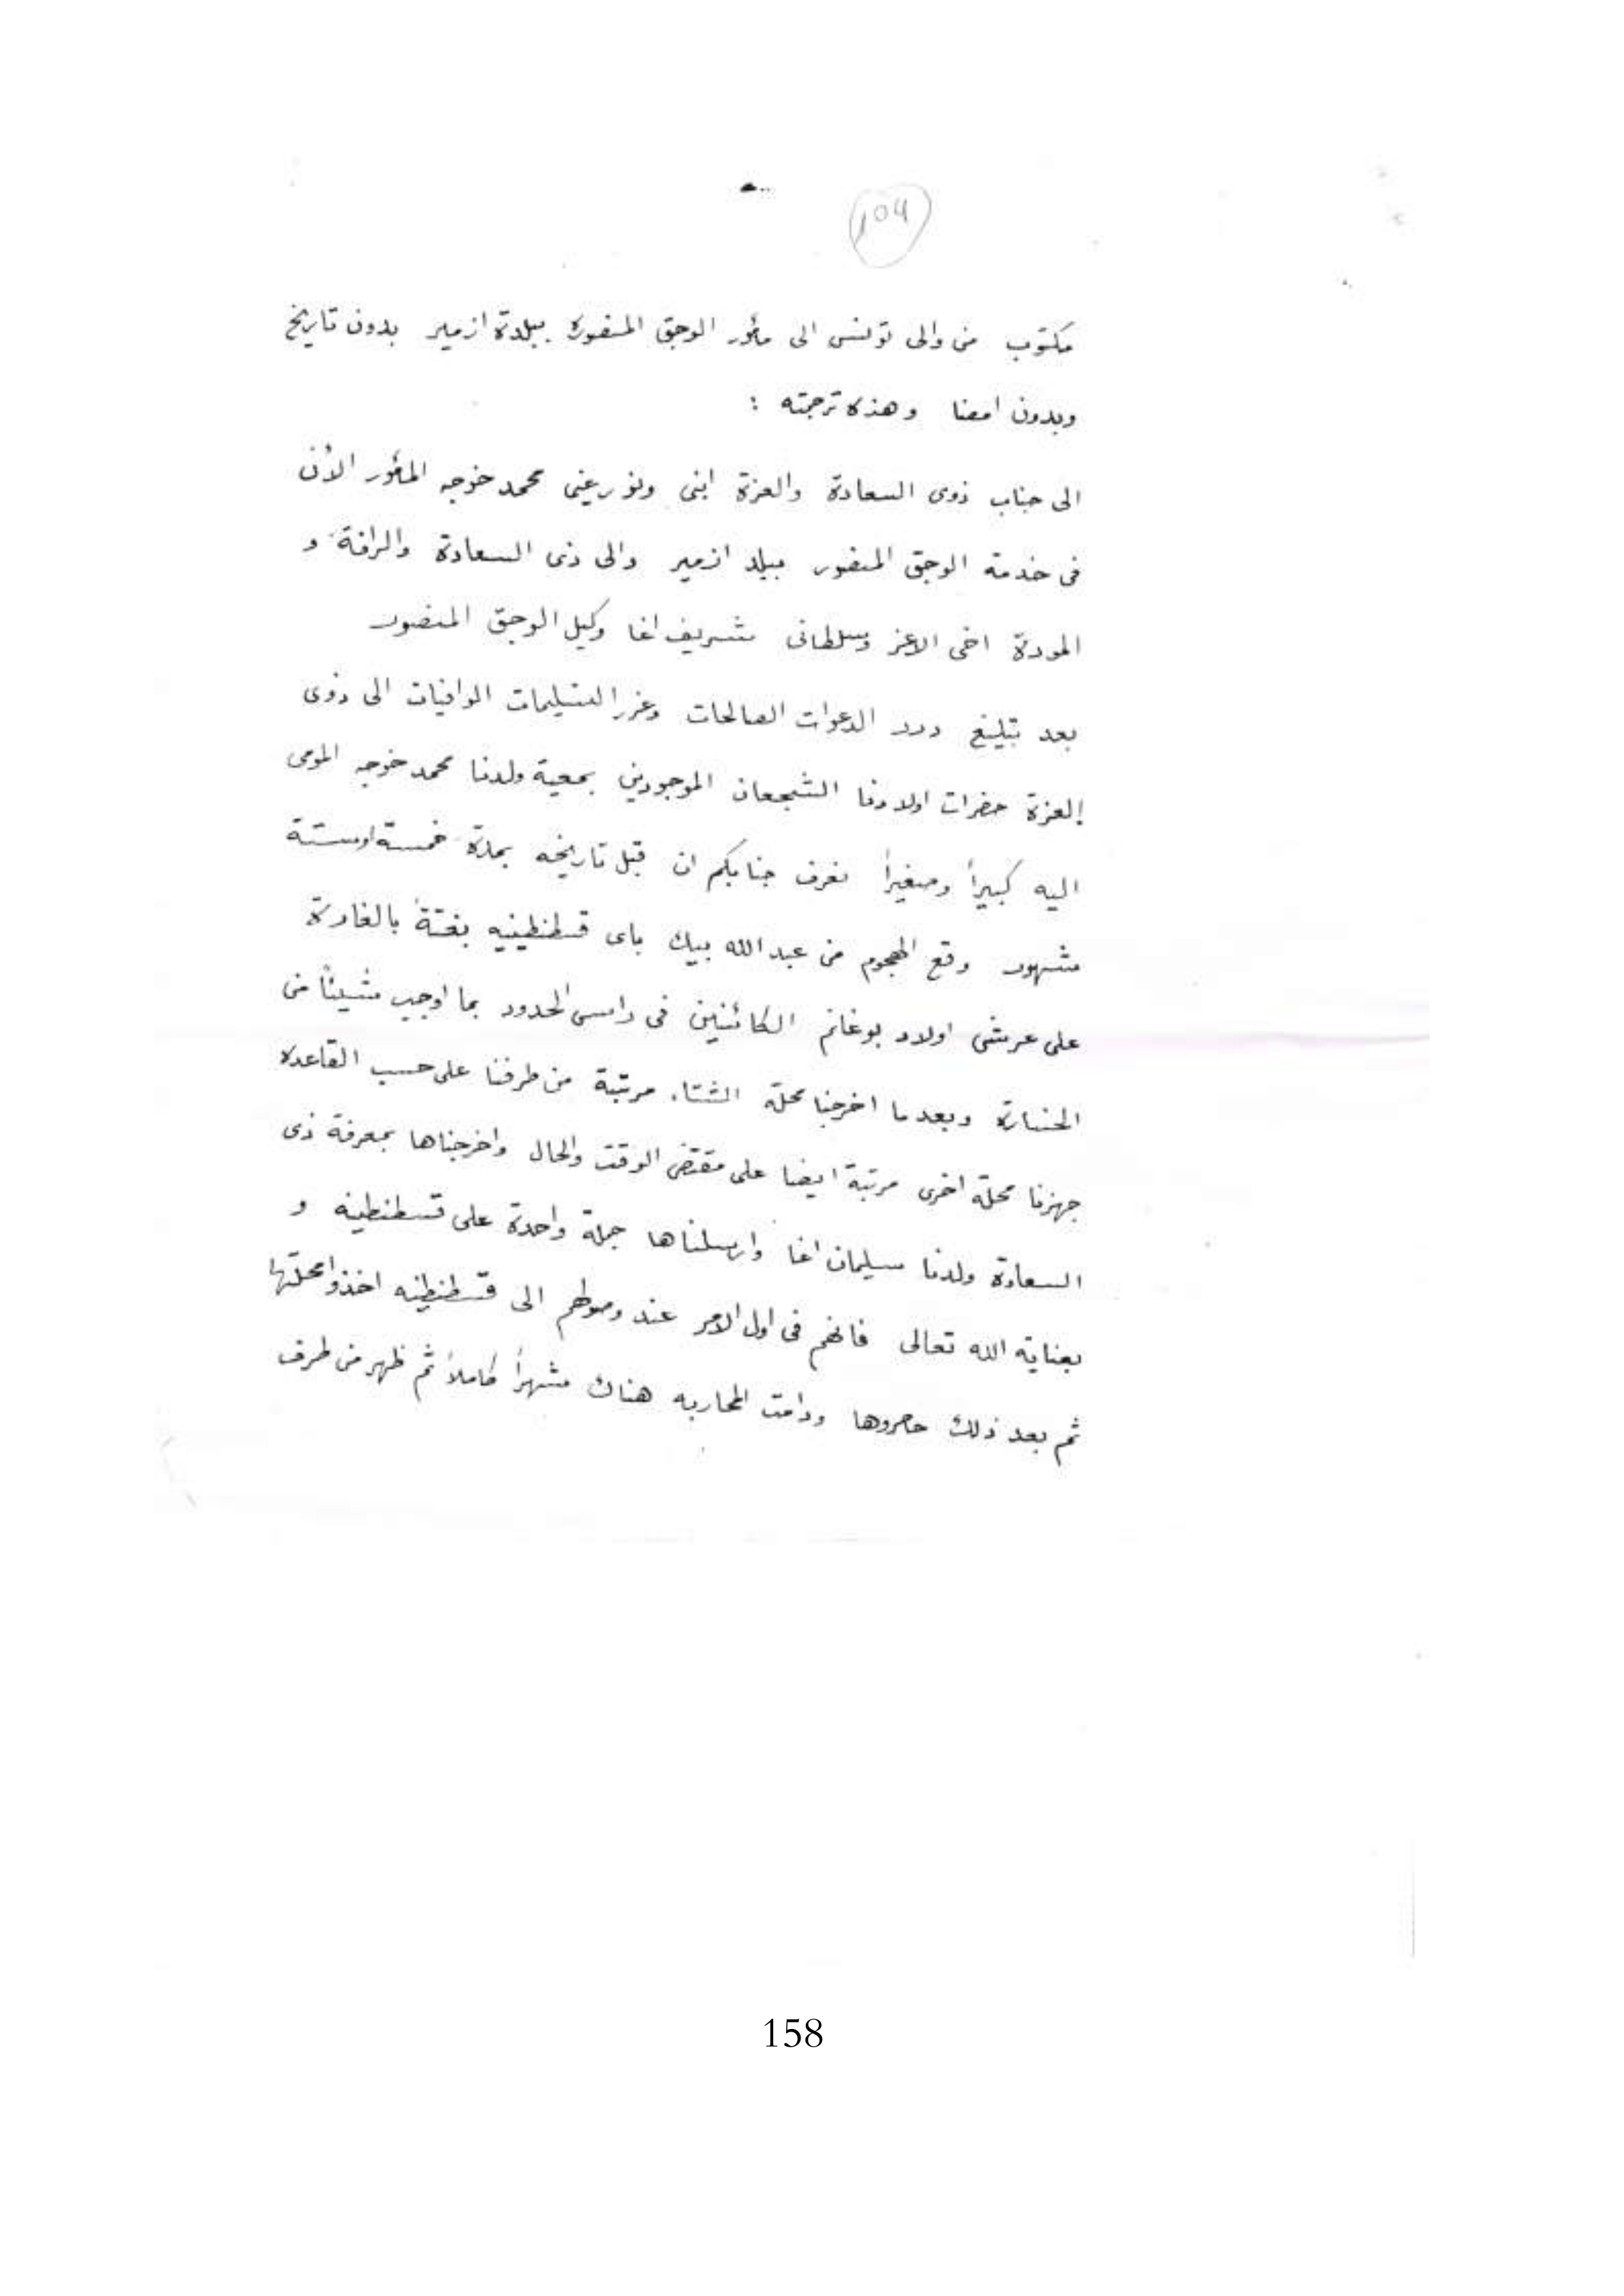 104
مكتوب من والى تونس الى مأمور الوجق المنصوره ببلدة ازمير بدون تاريخ
وبدون امضا وهذه ترجمته :
الى جناب ذوى السعادة والعزة ابنى ونور عينى محمد خوجه المأمور الأن
فى خدمة الوجق المنصور ببلد ازمير والى ذى السعادة والرافة و
المودة اخى الاعز وسلطانى شريف اغا وكيل الوجق المنصور
بعد تبليغ درر الدعوات الصالحات وغرر التسليمات الوافيات الى ذوى
العزة حضرات اولادنا الشجعان الموجودين بمعية ولدنا محمد خوجه المومى
اليه كبيراً وصغيراً نعرف جنابكم ان قبل تاريخه بمدة خمسة اوستة
شهور وقع الهجوم من عبد الله بيك باى قسطنطينيه بغتةً بالغارة
على عرش اولاد بوغانم الكائنين فى راس الحدود بما اوجب شيئاً من
الخسارة وبعد ما اخرجنا محلة الشتاء مرتبة من طرفنا على حسب القاعده
جهزنا محلة اخرى مرتبة ايضا على مقتضى الوقت والحال واخرجناها بمعرفة ذى
السعادة ولدنا سليمان اغا وارسلناها جملة واحدة على قسطنطينه و
بعناية الله تعالى فانهم فى اول الامر عند وصولهم الى قسطنطينه اخذوا محلتها
ثم بعد ذلك حصروها ودامت المحاربه هناك شهراً كاملاً ثم ظهر من طرف
158